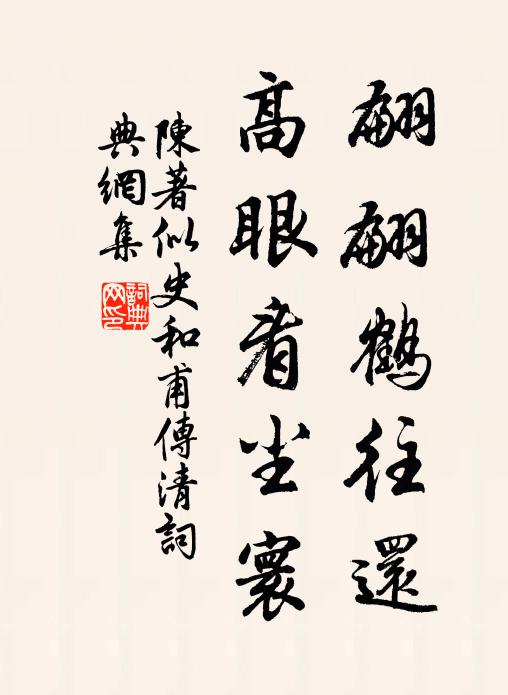 翩翩鹤往還
高眼看尘寰
陳著似史和甫傳清詞
典網集
詞典
网印